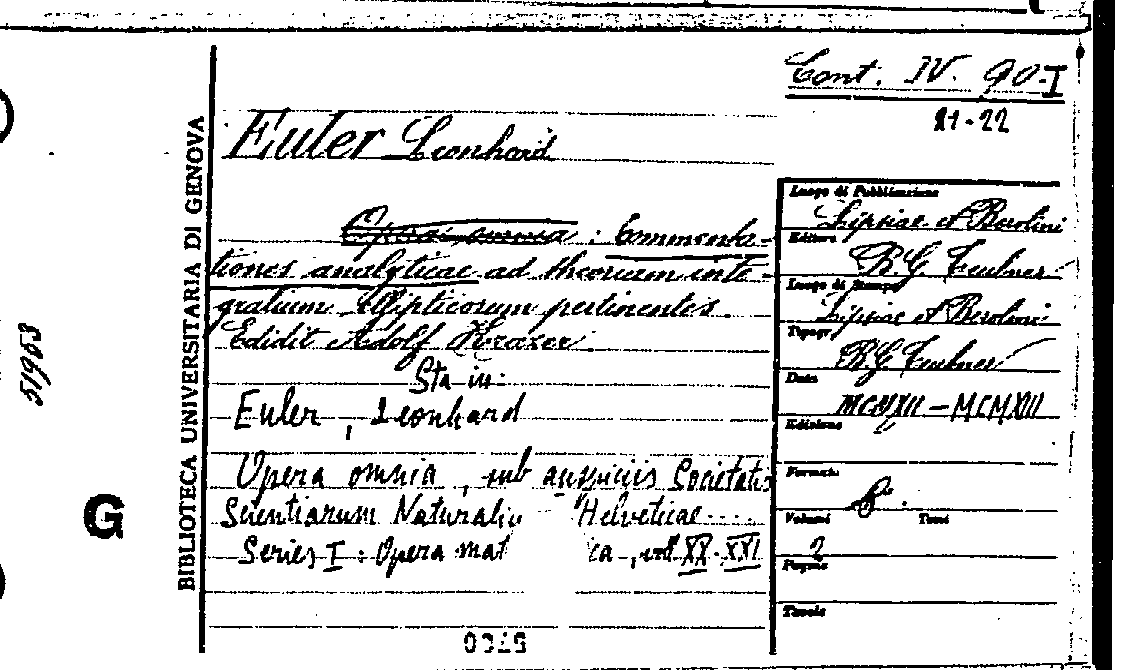 Cont. IV. 90-I
21-22
Euler Leonhard
Opera omnia : Commenta-
tiones analyticae ad theoriam inte-
gralium ellipticorum pertinentes.
Edidit Adolf Krazer.
Sta in:
Euler, Leonhard
Opera omnia, sub auspiciis Societatis
Scientiarum Naturaliu Helveticae....
Series I : Opera mat ca, voll XX-XXI
Luogo di Pubblicazione
Lipsiae et Berolini
Editore
B.G. Teubner
Luogo di Stampa
Lipsiae et Berolini
Tipogr.
B.G. Teubner
Data
MCMXII - MCMXIII
Edizione
Formato
8°.
Volumi Tomi
2
Pagine
Tavole
BIBLIOTECA UNIVERSITARIA DI GENOVA
51963
G